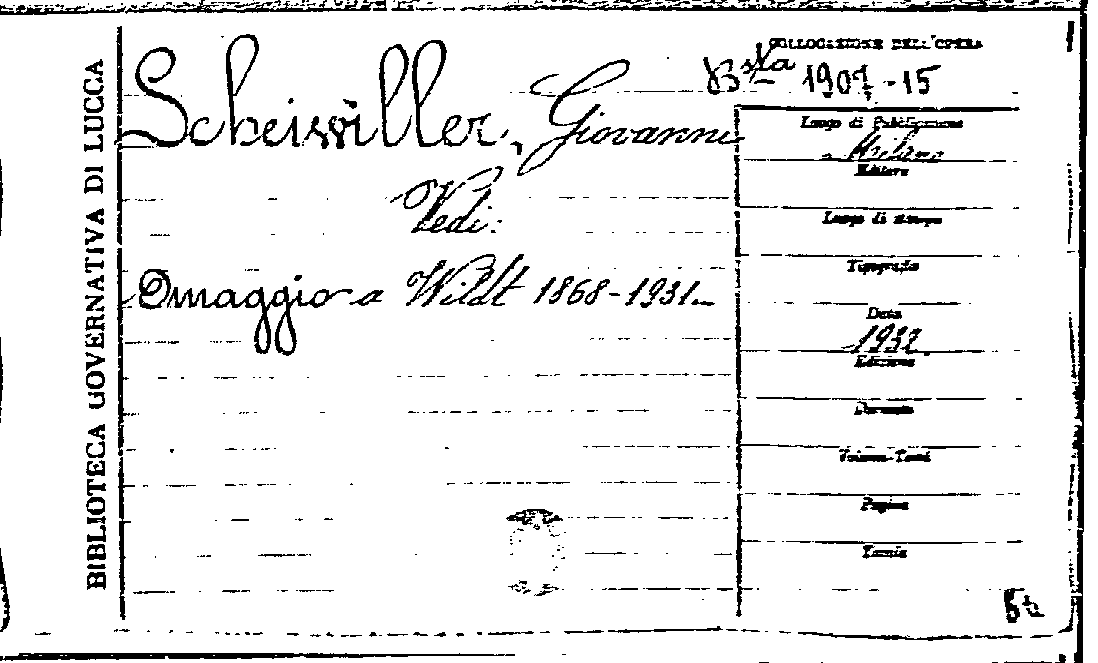 BIBLIOTECA GOVERNATIVA DI LUCCA
COLLOCAZIONE DELL'OPERA
Bsta 1907-15
Scheiwiller, Giovanni
Vedi:
Omaggio a Wildt 1868-1931
Luogo di Pubblicazione
Milano
Editore
Luogo di stampa
Tipografia
Data
1932
Edizione
Formato
Volume-Tomi
Pagine
Tavole